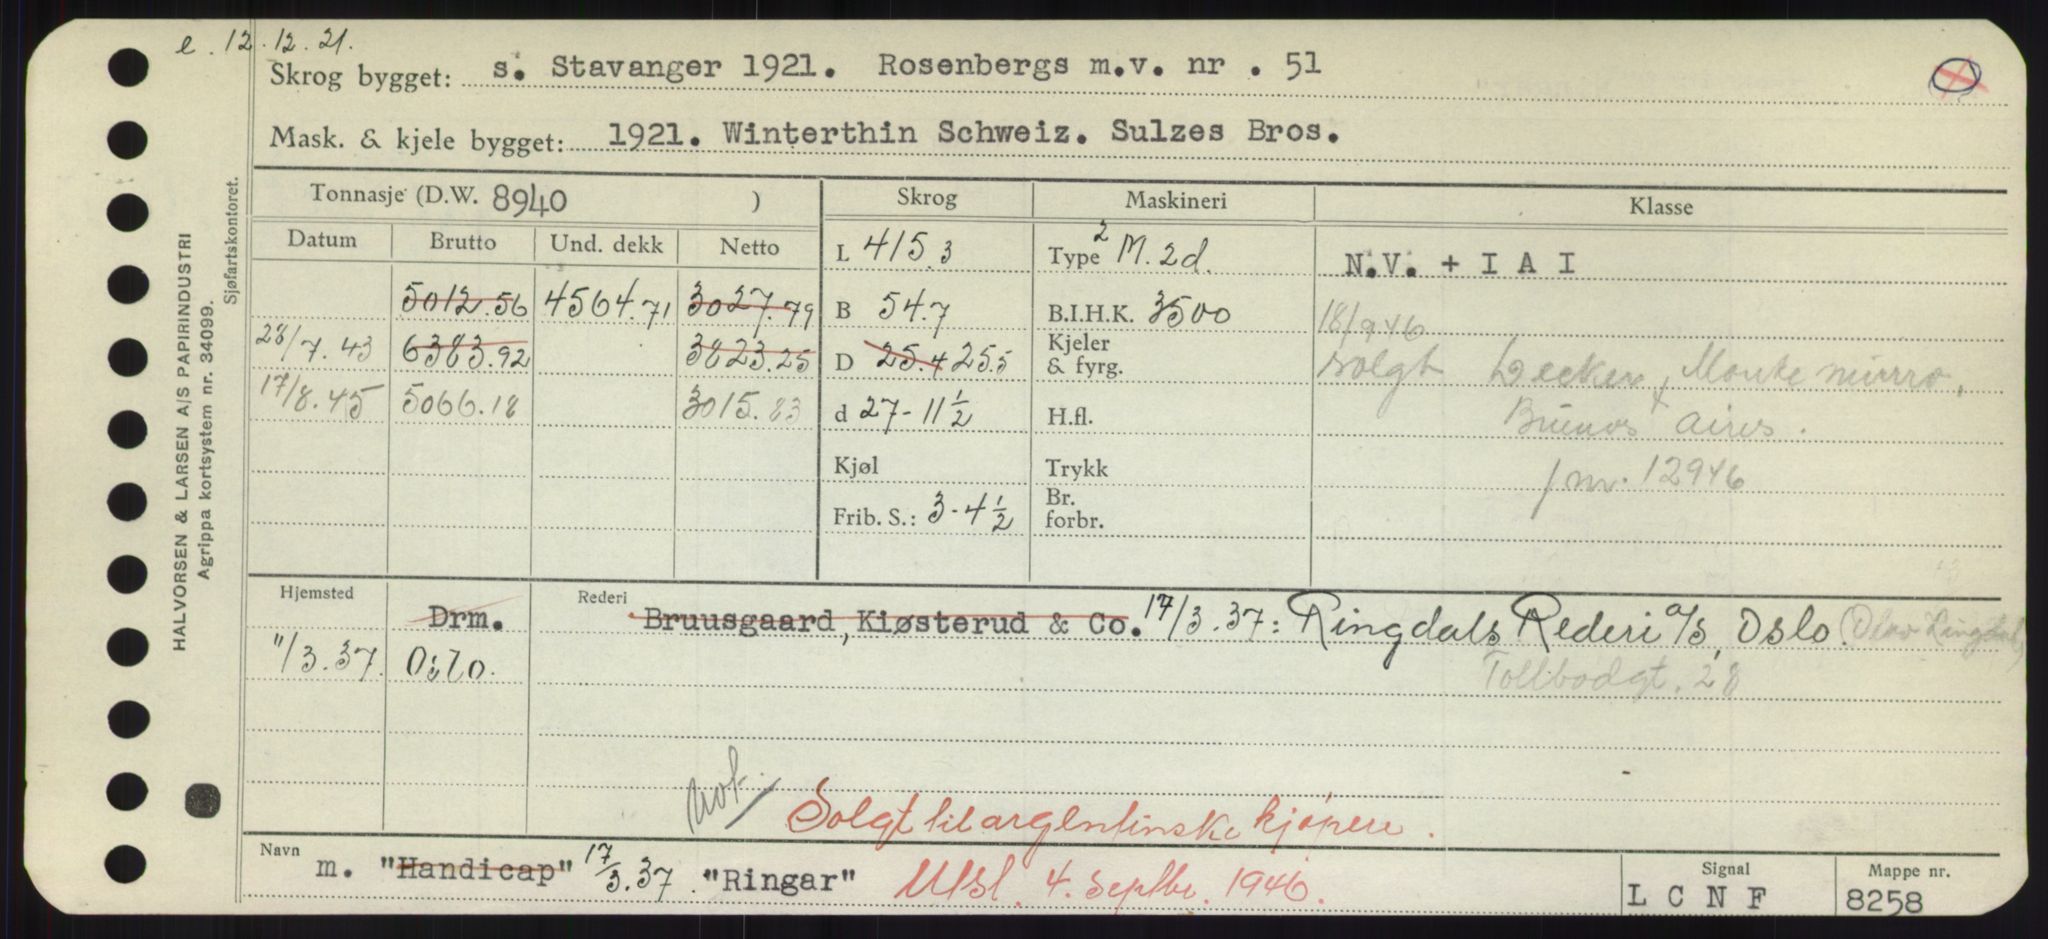 e. 12.12.21.
Skrog bygget: s. Stavanger 1921. Rosenbergs m.v. nr . 51
Mask. & kjele bygget: 1921. Winterthin Schweiz. Sulzes Bros.
Tonnasje (D.W. 8940 ) Skrog Maskineri Klasse
Datum Brutto Und. dekk Netto L 415.3 Type 2 M. 2d. N.V. + I A I
5012.56 4564.71 3027.79 B 54.7 B.I.H.K. 3500 18/9 46
28/7.43 6383.92 3823.25 D 25.4 25.5 Kjeler & fyrg. solgt
17/8.45 5066.18 3015.83 d 27-11½ H.fl. Buenos Aires.
Kjøl Trykk
Frib. S.: 3-4½ Br. forbr.
Hjemsted Drm. Rederi Bruusgaard, Kiøsterud & Co. 17/3.37: Ringdals Rederi a/s, Oslo.
11/3.37. Oslo. Tollbodgt. 28
Solgt til argentinske kjøpere.
Navn m. "Handicap" 17/3.37. "Ringar" Utsl. 4. septbr. 1946.
Signal L C N F
Mappe nr. 8258
HALVORSEN & LARSEN A/S PAPIRINDUSTRI
Agrippa kortsystem nr. 34099.
Sjøfartskontoret.